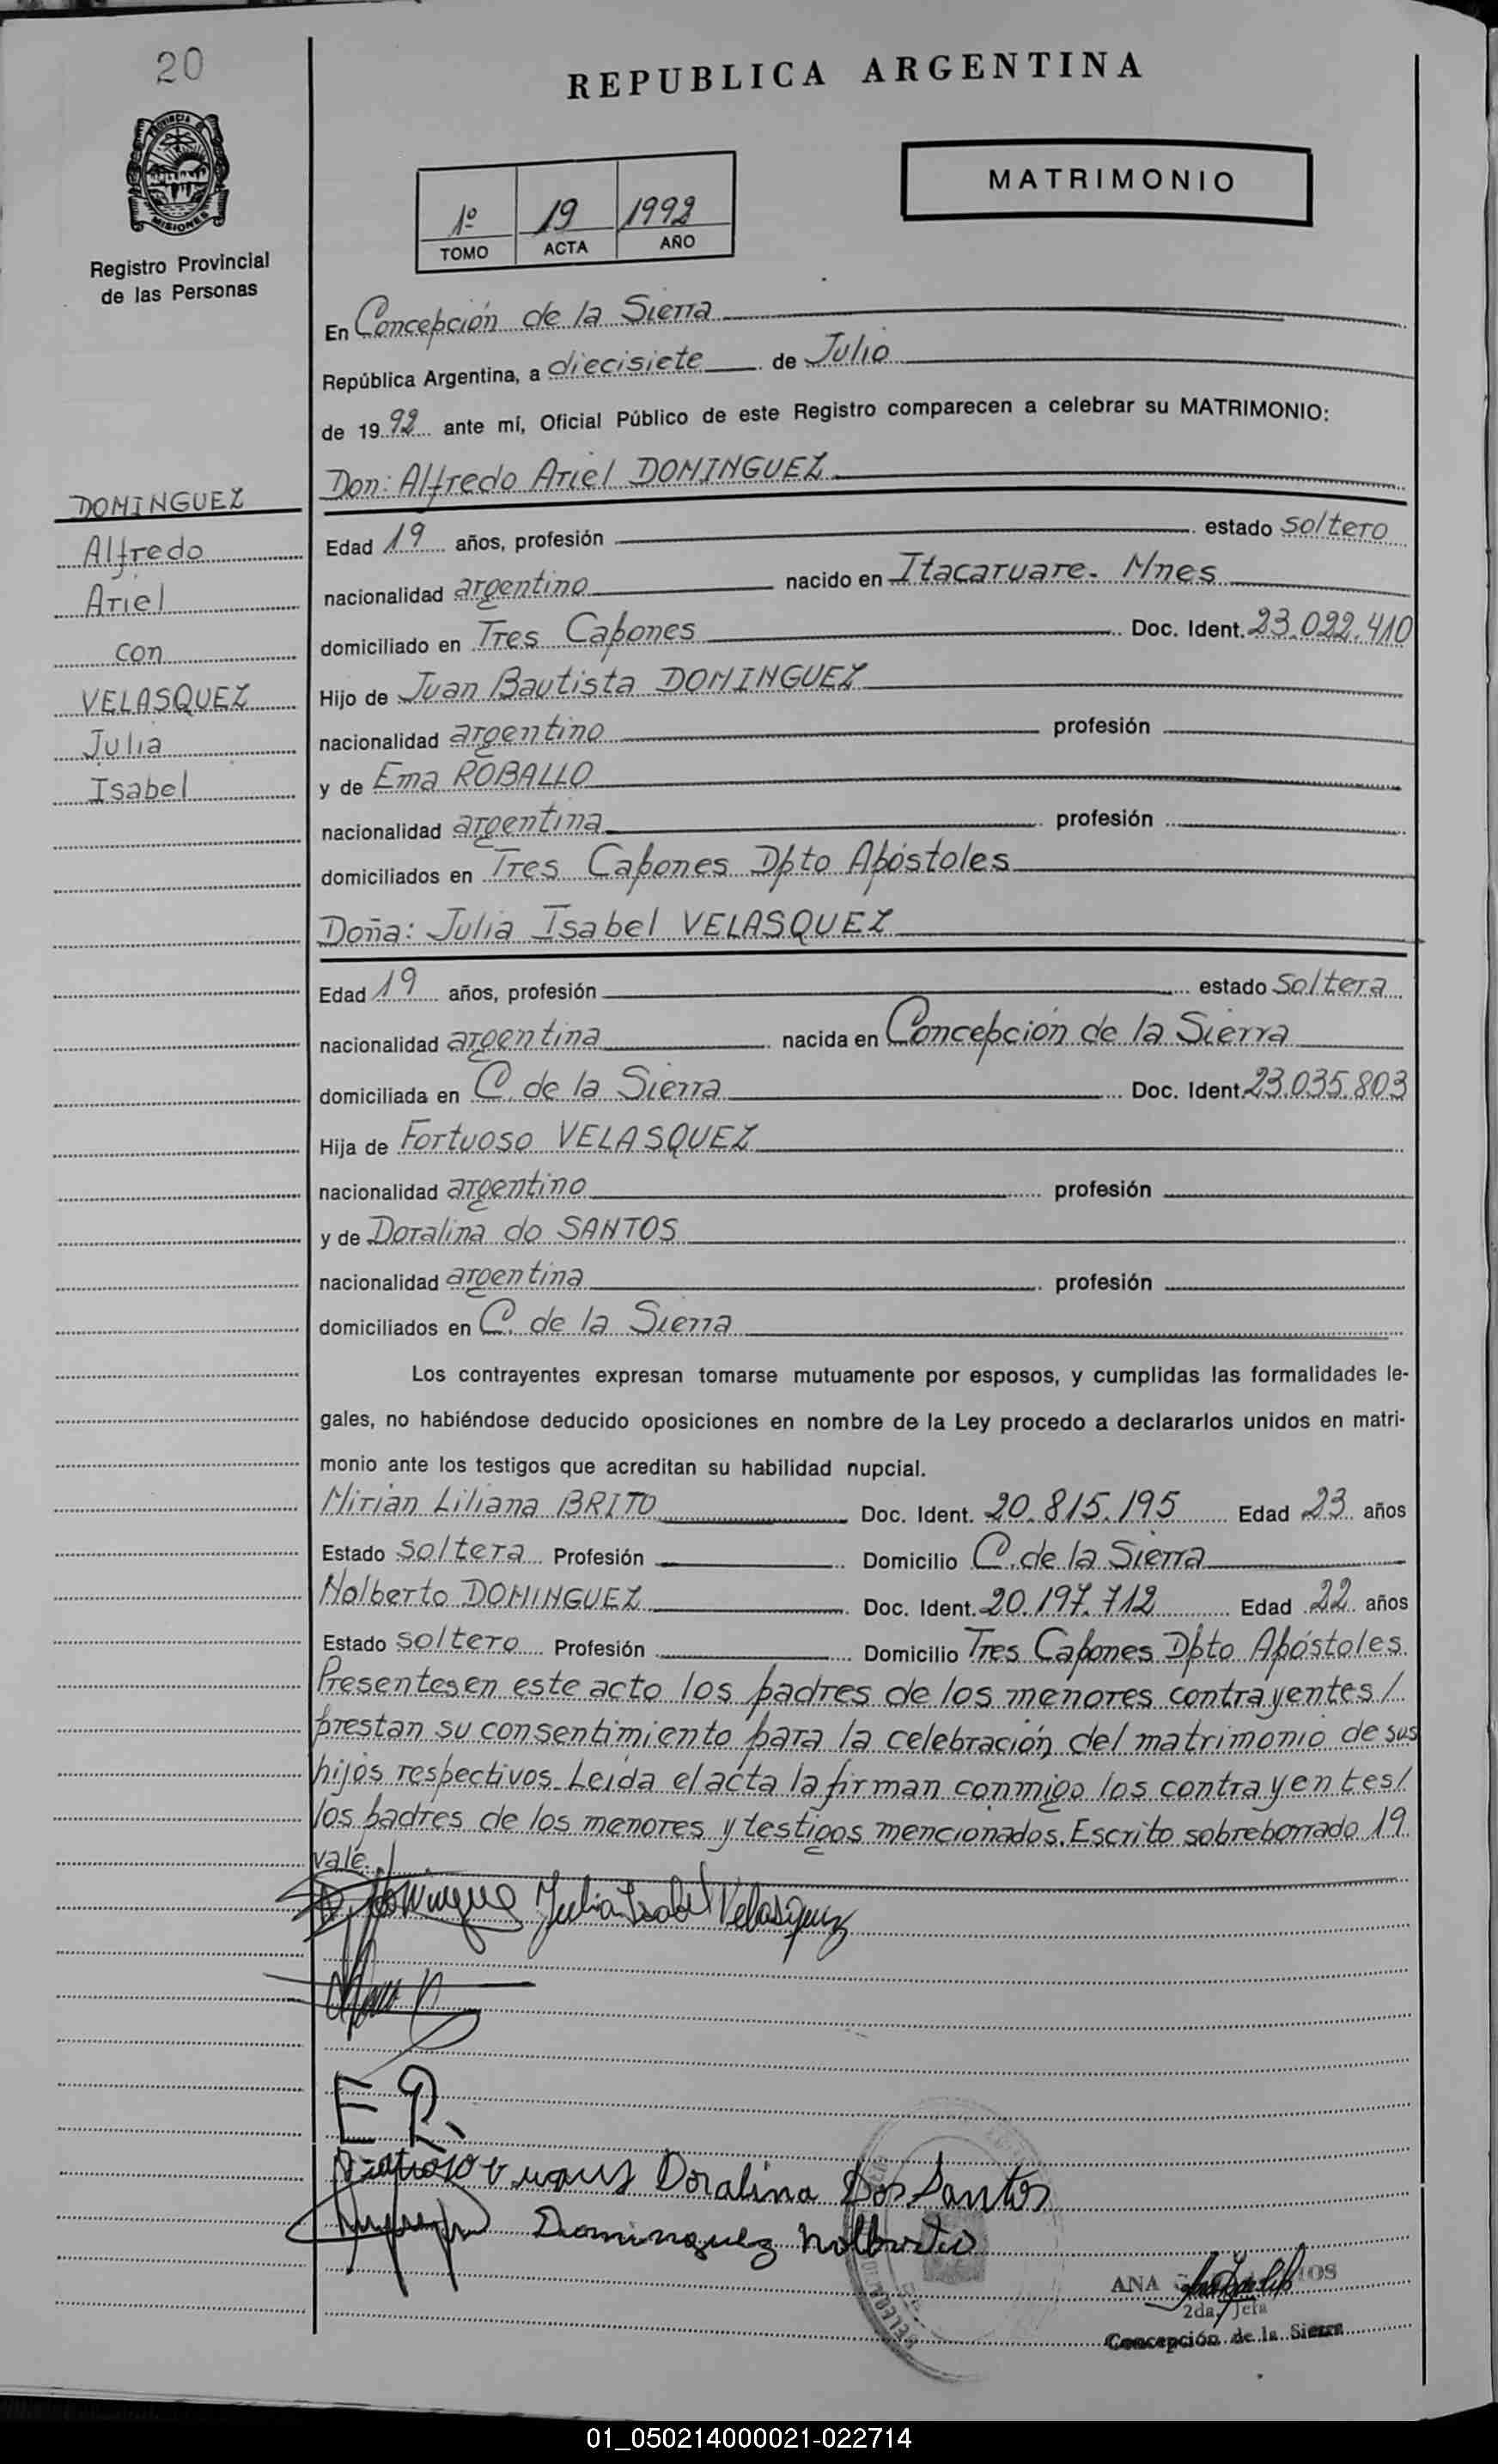 20
REPUBLICA ARGENTINA
PROVINCIA DE
MISIONES
MATRIMONIO
1º 19 1992
TOMO ACTA AÑO
Registro Provincial
de las Personas
En Concepción de la Sierra
República Argentina, a diecisiete de Julio
de 1992 ante mí, Oficial Público de este Registro comparecen a celebrar su MATRIMONIO:
Don: Alfredo Ariel DOMINGUEZ
DOMINGUEZ
Alfredo
Ariel
con
VELASQUEZ
Julia
Isabel
Edad 19 años, profesión estado soltero
nacionalidad argentino nacido en Itacaruare- Mnes
domiciliado en Tres Capones Doc. Ident. 23.022.410
Hijo de Juan Bautista DOMINGUEZ
nacionalidad argentino profesión
y de Ema ROBALLO
nacionalidad argentina profesión
domiciliados en Tres Capones Dpto Apóstoles
Doña: Julia Isabel VELASQUEZ
Edad 19 años, profesión estado soltera
nacionalidad argentina nacida en Concepción de la Sierra
domiciliada en C. de la Sierra Doc. Ident. 23.035.803
Hija de Fortuoso VELASQUEZ
nacionalidad argentino profesión
y de Doralina do SANTOS
nacionalidad argentina profesión
domiciliados en C. de la Sierra
Los contrayentes expresan tomarse mutuamente por esposos, y cumplidas las formalidades le-
gales, no habiéndose deducido oposiciones en nombre de la Ley procedo a declararlos unidos en matri-
monio ante los testigos que acreditan su habilidad nupcial.
Mirian Liliana BRITO Doc. Ident. 20.815.195 Edad 23 años
Estado soltera Profesión Domicilio C. de la Sierra
Nolberto DOMINGUEZ Doc. Ident. 20.197.712 Edad 22 años
Estado soltero Profesión Domicilio Tres Capones Dpto Apóstoles
Presentes en este acto los padres de los menores contrayentes/
prestan su consentimiento para la celebración del matrimonio de sus
hijos respectivos. Leida el acta la firman conmigo los contrayentes/
los padres de los menores y testigos mencionados. Escrito sobreborrado 19
vale.
Julia Isabel Velasquez
E R.
Doralina Dos Santos
Dominguez Nolberto
ANA
2da. Jefa
Concepción de la Sierra
01_050214000021-022714